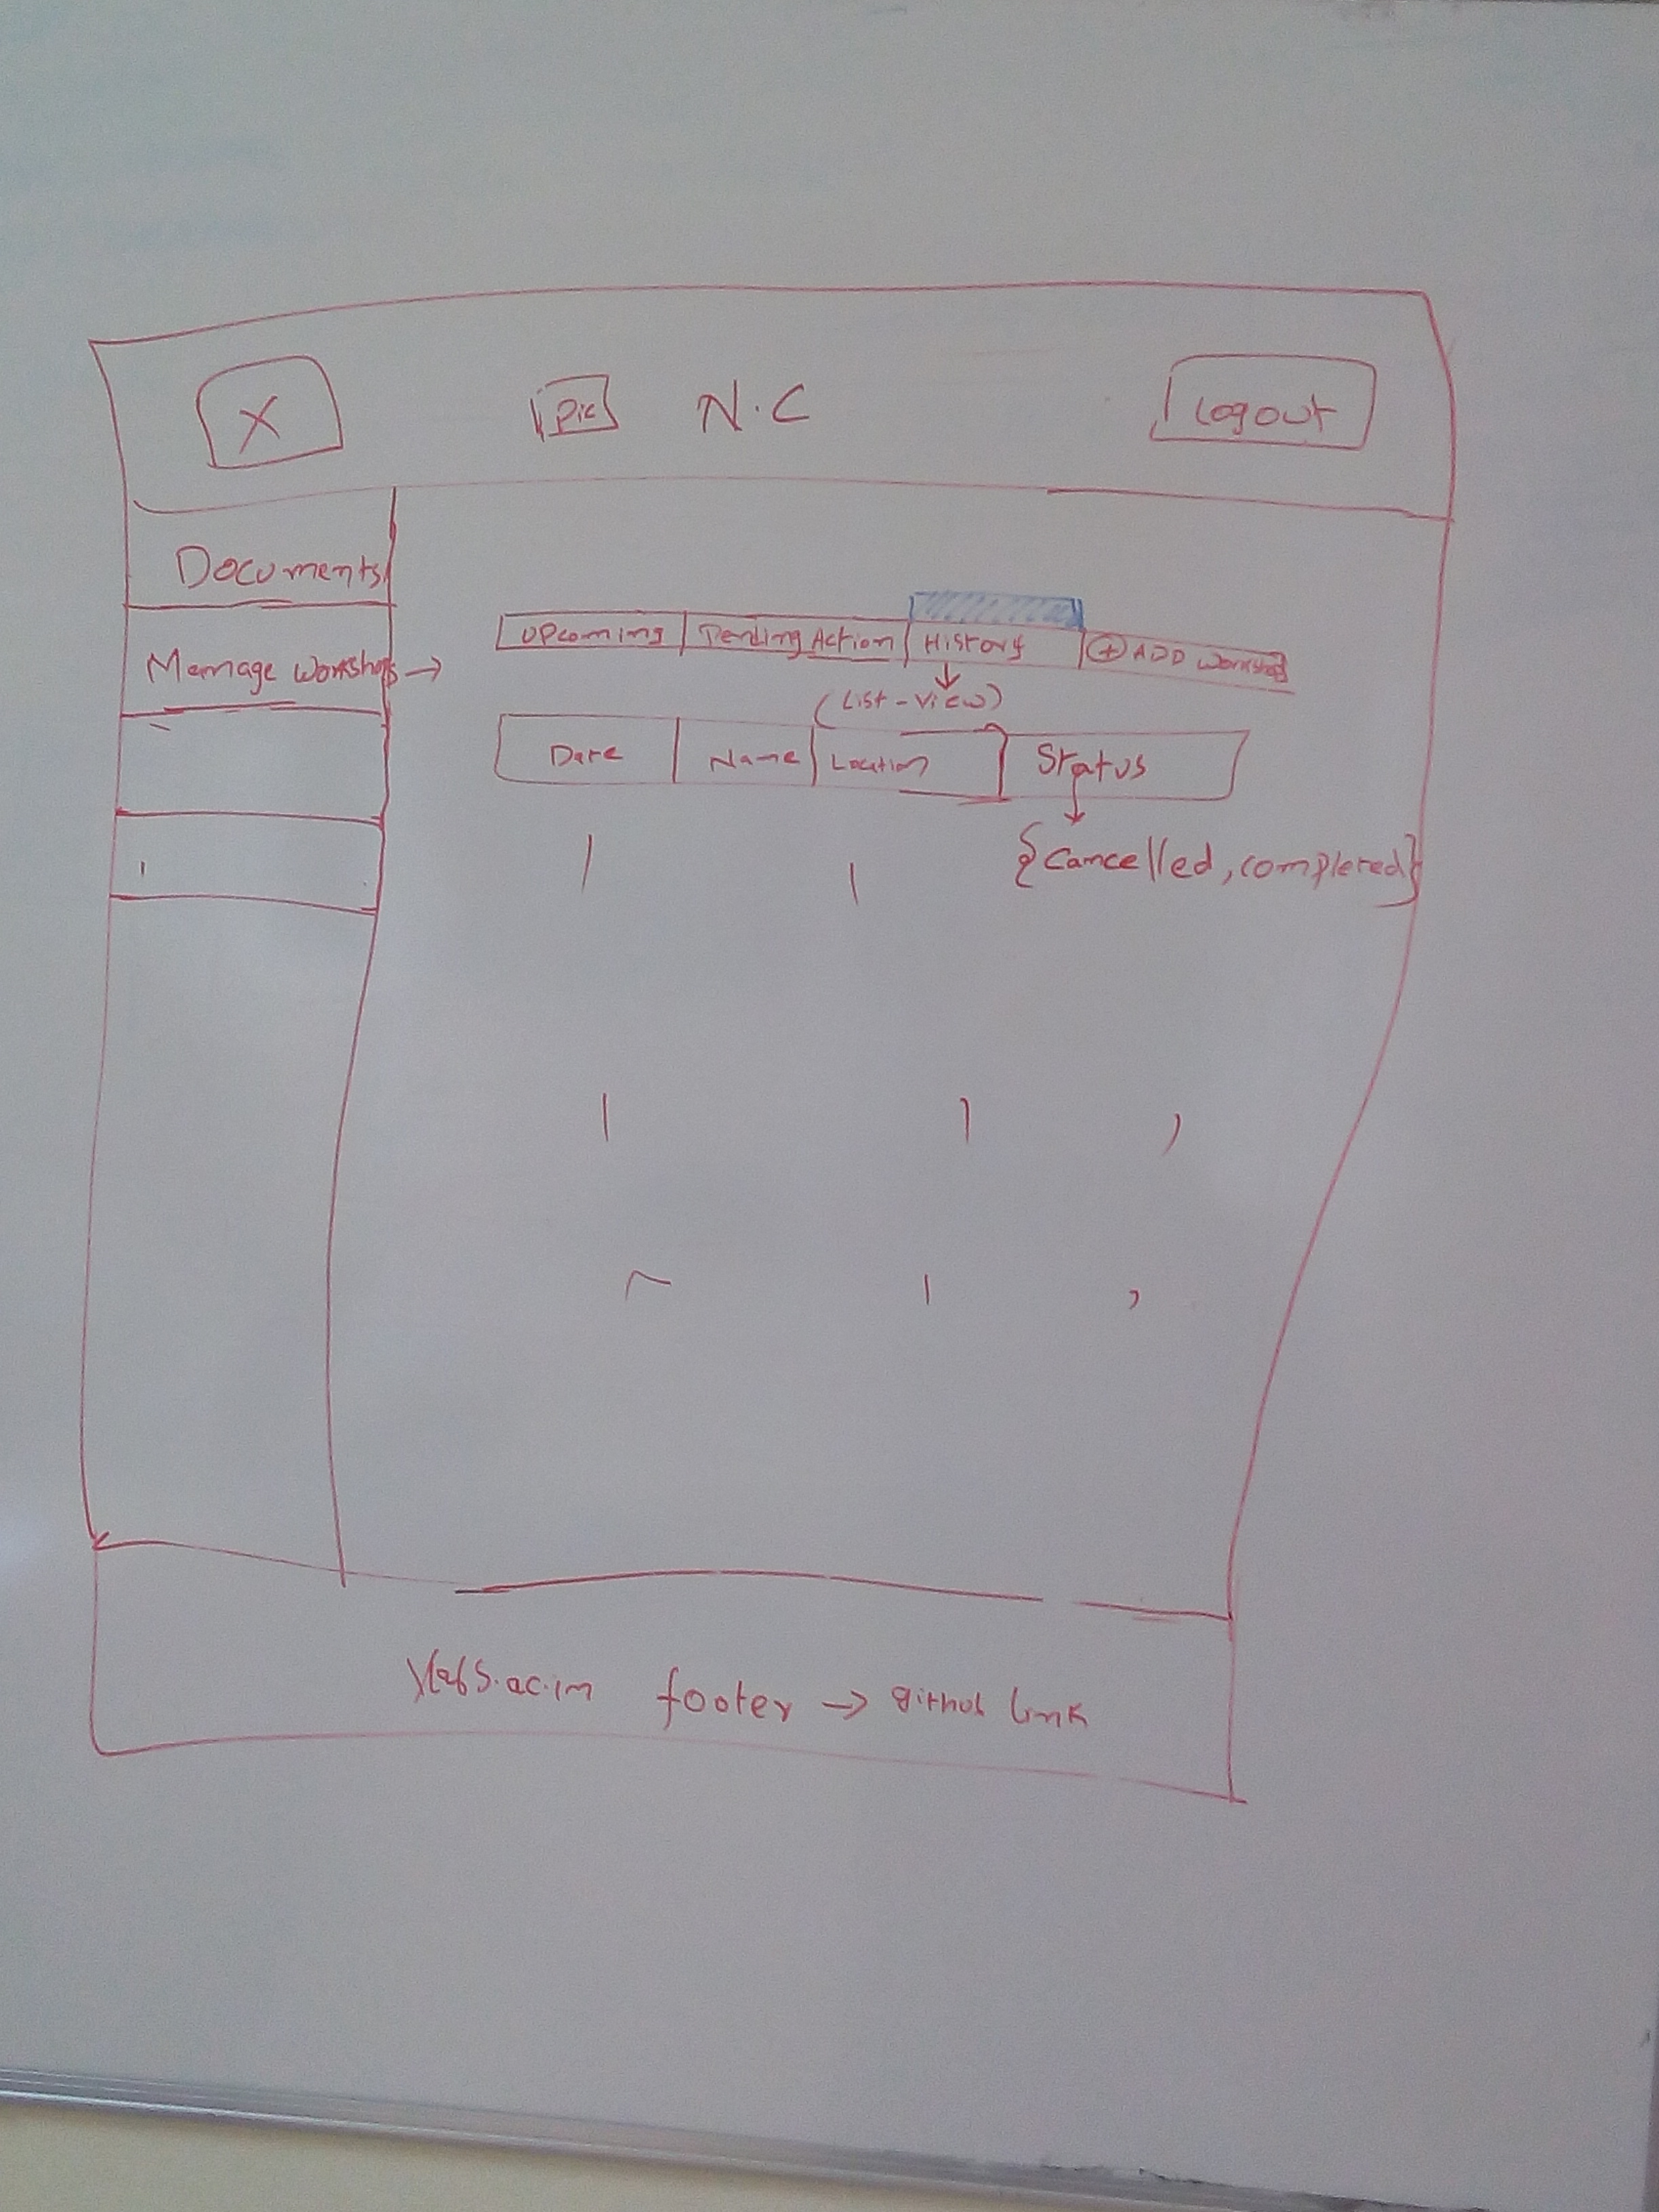 X
Pic N.C
Logout
Documents
Manage workshops →
Upcoming Pending Action History + ADD Workshop
(List-View)
Date Name Location Status
{Cancelled, completed}
Vlabs.ac.in footer → github link